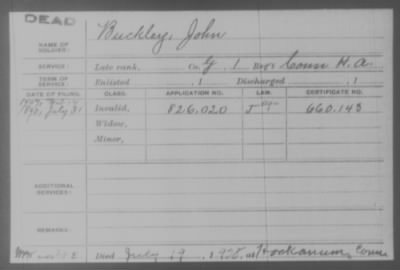 DEAD
Buckley, John
NAME OF SOLDIER:
SERVICE: Late rank, Co. G, 1 Reg't Conn H. A.
TERM OF SERVICE: Enlisted , 1 Discharged , 1
DATE OF FILING. CLASS. APPLICATION NO. LAW. CERTIFICATE NO.
July 31 Invalid, 826.020 J 660.143
Widow,
Minor,
ADDITIONAL SERVICES:
REMARKS:
Died July 19, 1920, at Hockanum, Conn